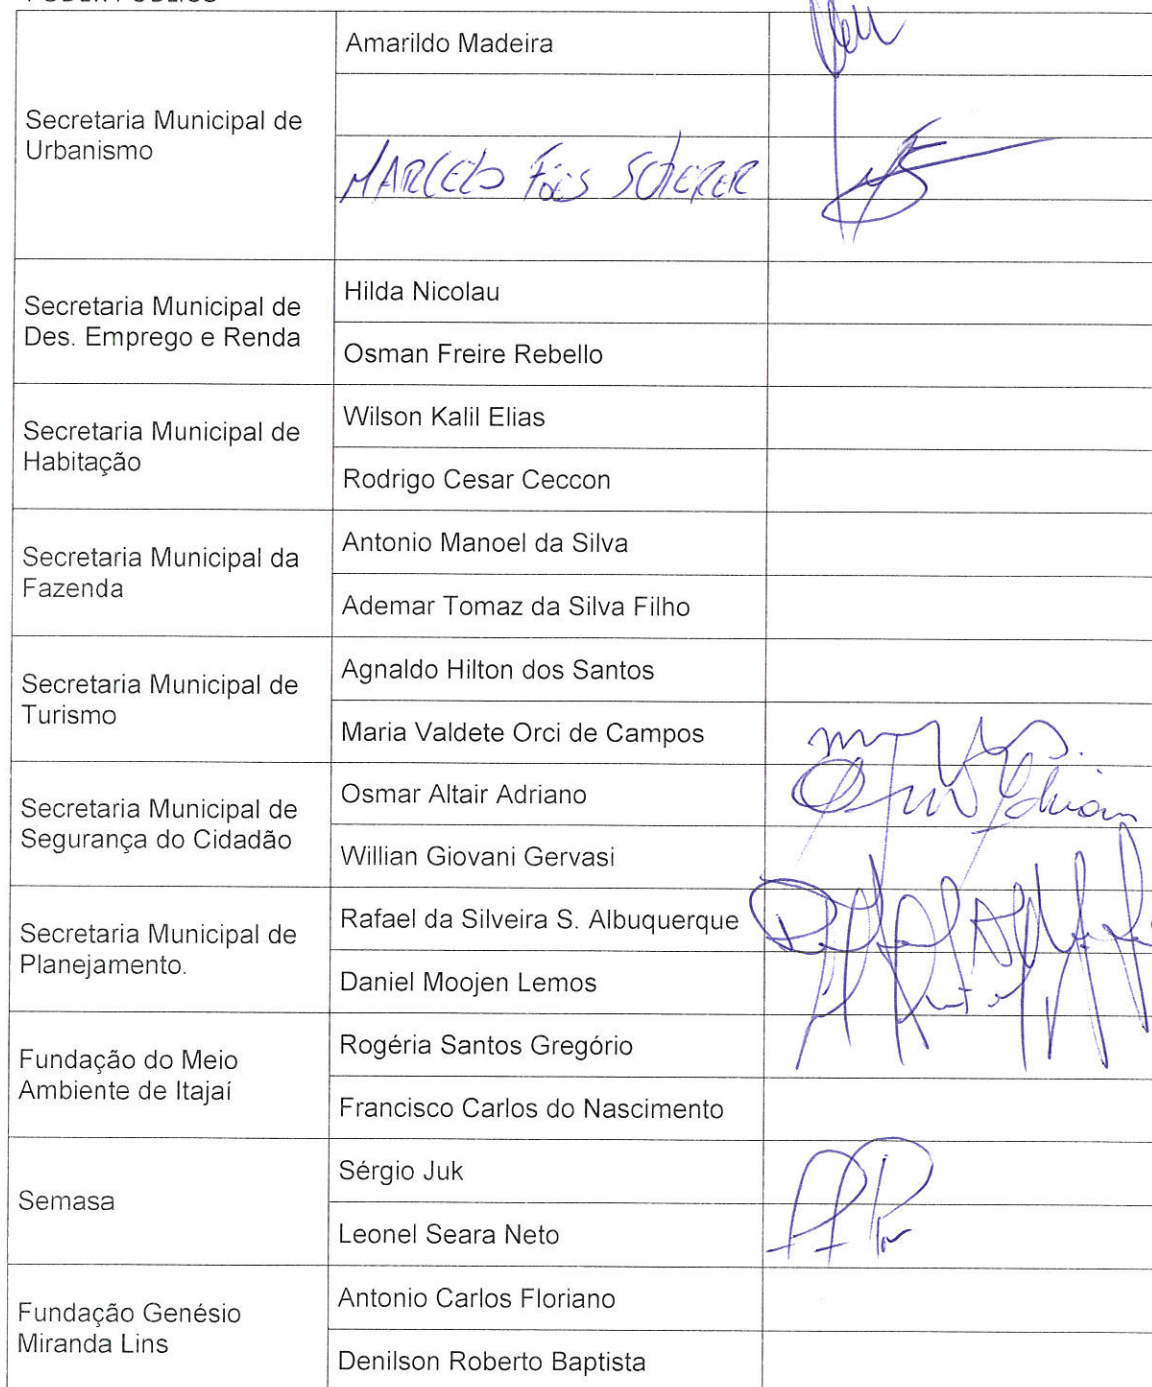 PODER PÚBLICO
Amarildo Madeira
Secretaria Municipal de
Urbanismo
MARCELO SCHERER
Secretaria Municipal de
Des. Emprego e Renda
Hilda Nicolau
Osman Freire Rebello
Secretaria Municipal de
Habitação
Wilson Kalil Elias
Rodrigo Cesar Ceccon
Secretaria Municipal da
Fazenda
Antonio Manoel da Silva
Ademar Tomaz da Silva Filho
Secretaria Municipal de
Turismo
Agnaldo Hilton dos Santos
Maria Valdete Orci de Campos
Secretaria Municipal de
Segurança do Cidadão
Osmar Altair Adriano
Willian Giovani Gervasi
Secretaria Municipal de
Planejamento.
Rafael da Silveira S. Albuquerque
Daniel Moojen Lemos
Fundação do Meio
Ambiente de Itajaí
Rogéria Santos Gregório
Francisco Carlos do Nascimento
Semasa
Sérgio Juk
Leonel Seara Neto
Fundação Genésio
Miranda Lins
Antonio Carlos Floriano
Denilson Roberto Baptista